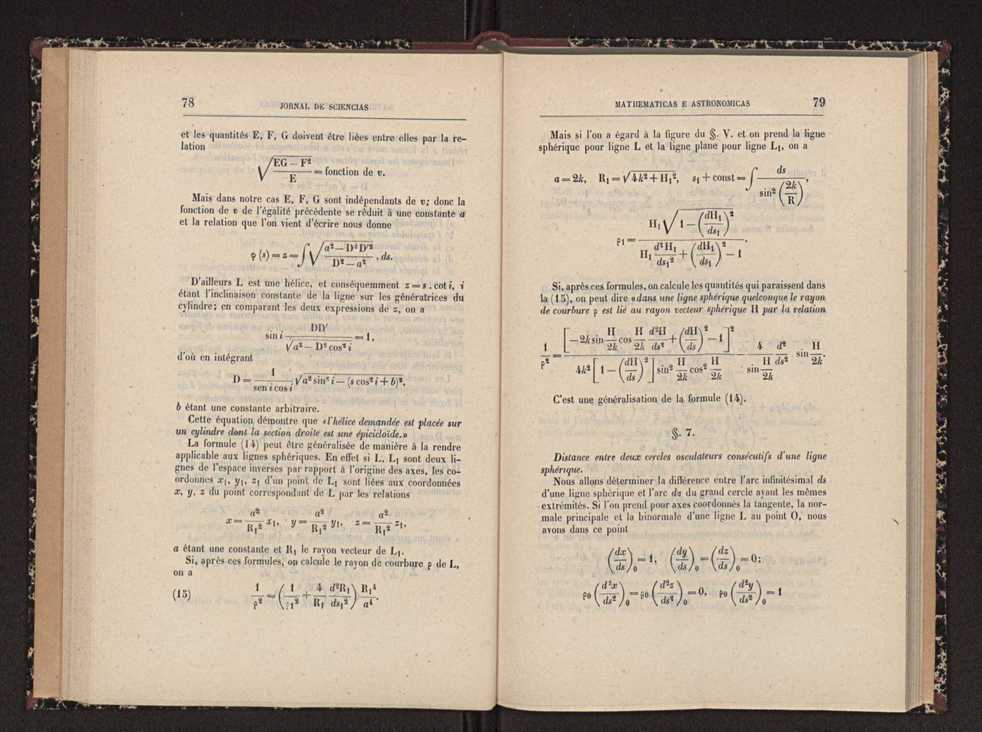 78
JORNAL DE SCIENCIAS
et les quantités E, F, G doivent être liées entre elles par la re-
lation
√((EG — F²)/E) = fonction de v.
Mais dans notre cas E, F, G sont indépendants de v; donc la
fonction de v de l'égalité précédente se réduit à une constante a
et la relation que l'on vient d'écrire nous donne
φ (s) = z = ∫ √((a² — D²D'²)/(D² — a²)) . ds.
D'ailleurs L est une hélice, et conséquemment z = s . cot i, i
étant l'inclinaison constante de la ligne sur les génératrices du
cylindre; en comparant les deux expressions de z, on a
sin i DD'/√(a² — D² cos² i) = 1,
d'où en intégrant
D = 1/(sen i cos i) √(a² sin² i — (s cos² i + b)²,
b étant une constante arbitraire.
Cette équation démontre que «l'hélice demandée est placée sur
un cylindre dont la section droite est une épicicloïde.»
La formule (14) peut être généralisée de manière à la rendre
applicable aux lignes sphériques. En effet si L, L₁ sont deux li-
gnes de l'espace inverses par rapport à l'origine des axes, les co-
ordonnes x₁, y₁, z₁ d'un point de L₁ sont liées aux coordonnées
x, y, z du point correspondant de L par les relations
x = a²/R₁² x₁, y = a²/R₁² y₁, z = a²/R₁² z₁,
a étant une constante et R₁ le rayon vecteur de L₁.
Si, après ces formules, on calcule le rayon de courbure ρ de L,
on a
(15) 1/ρ² = (1/ρ₁² + 4/R₁ d²R₁/ds₁²) R₁⁴/a⁴.
MATHEMATICAS E ASTRONOMICAS
79
Mais si l'on a égard à la figure du §. V. et on prend la ligne
sphérique pour ligne L et la ligne plane pour ligne L₁, on a
a = 2k, R₁ = √(4k² + H₁²), s₁ + const = ∫ ds/sin² (2k/R),
ρ₁ = H₁ √(1 — (dH₁/ds₁)²)/(H₁ d²H₁/ds₁² + (dH₁/ds₁)² — 1).
Si, après ces formules, on calcule les quantités qui paraissent dans
la (15), on peut dire «dans une ligne sphérique quelconque le rayon
de courbure ρ est lié au rayon vecteur sphérique H par la relation
1/ρ² = [—2k sin H/2k cos H/2k d²H/ds² + (dH/ds)² — 1]²/(4k² [1 — (dH/ds)²] sin² H/2k cos² H/2k) . 4/(sin H/2k) d²/ds² sin H/2k.
C'est une généralisation de la formule (14).
§. 7.
Distance entre deux cercles osculateurs consécutifs d'une ligne
sphérique.
Nous allons déterminer la différence entre l'arc infinitésimal ds
d'une ligne sphérique et l'arc dσ du grand cercle ayant les mêmes
extrémités. Si l'on prend pour axes coordonnés la tangente, la nor-
male principale et la binormale d'une ligne L au point O, nous
avons dans ce point
(dx/ds)₀ = 1, (dy/ds)₀ = (dz/ds)₀ = 0;
ρ₀ (d²x/ds²)₀ = ρ₀ (d²z/ds²)₀ = 0, ρ₀ (d²y/ds²)₀ = 1